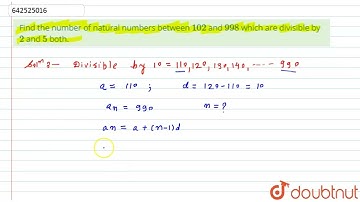 642525016
Find the number of natural numbers between 102 and 998 which are divisible by
2 and 5 both.
Solⁿ :- Divisible by 10 = 110, 120, 130, 140, ---- 990
a = 110 ; d = 120-110 = 10
an = 990 n = ?
an = a + (n-1)d
doubtnut